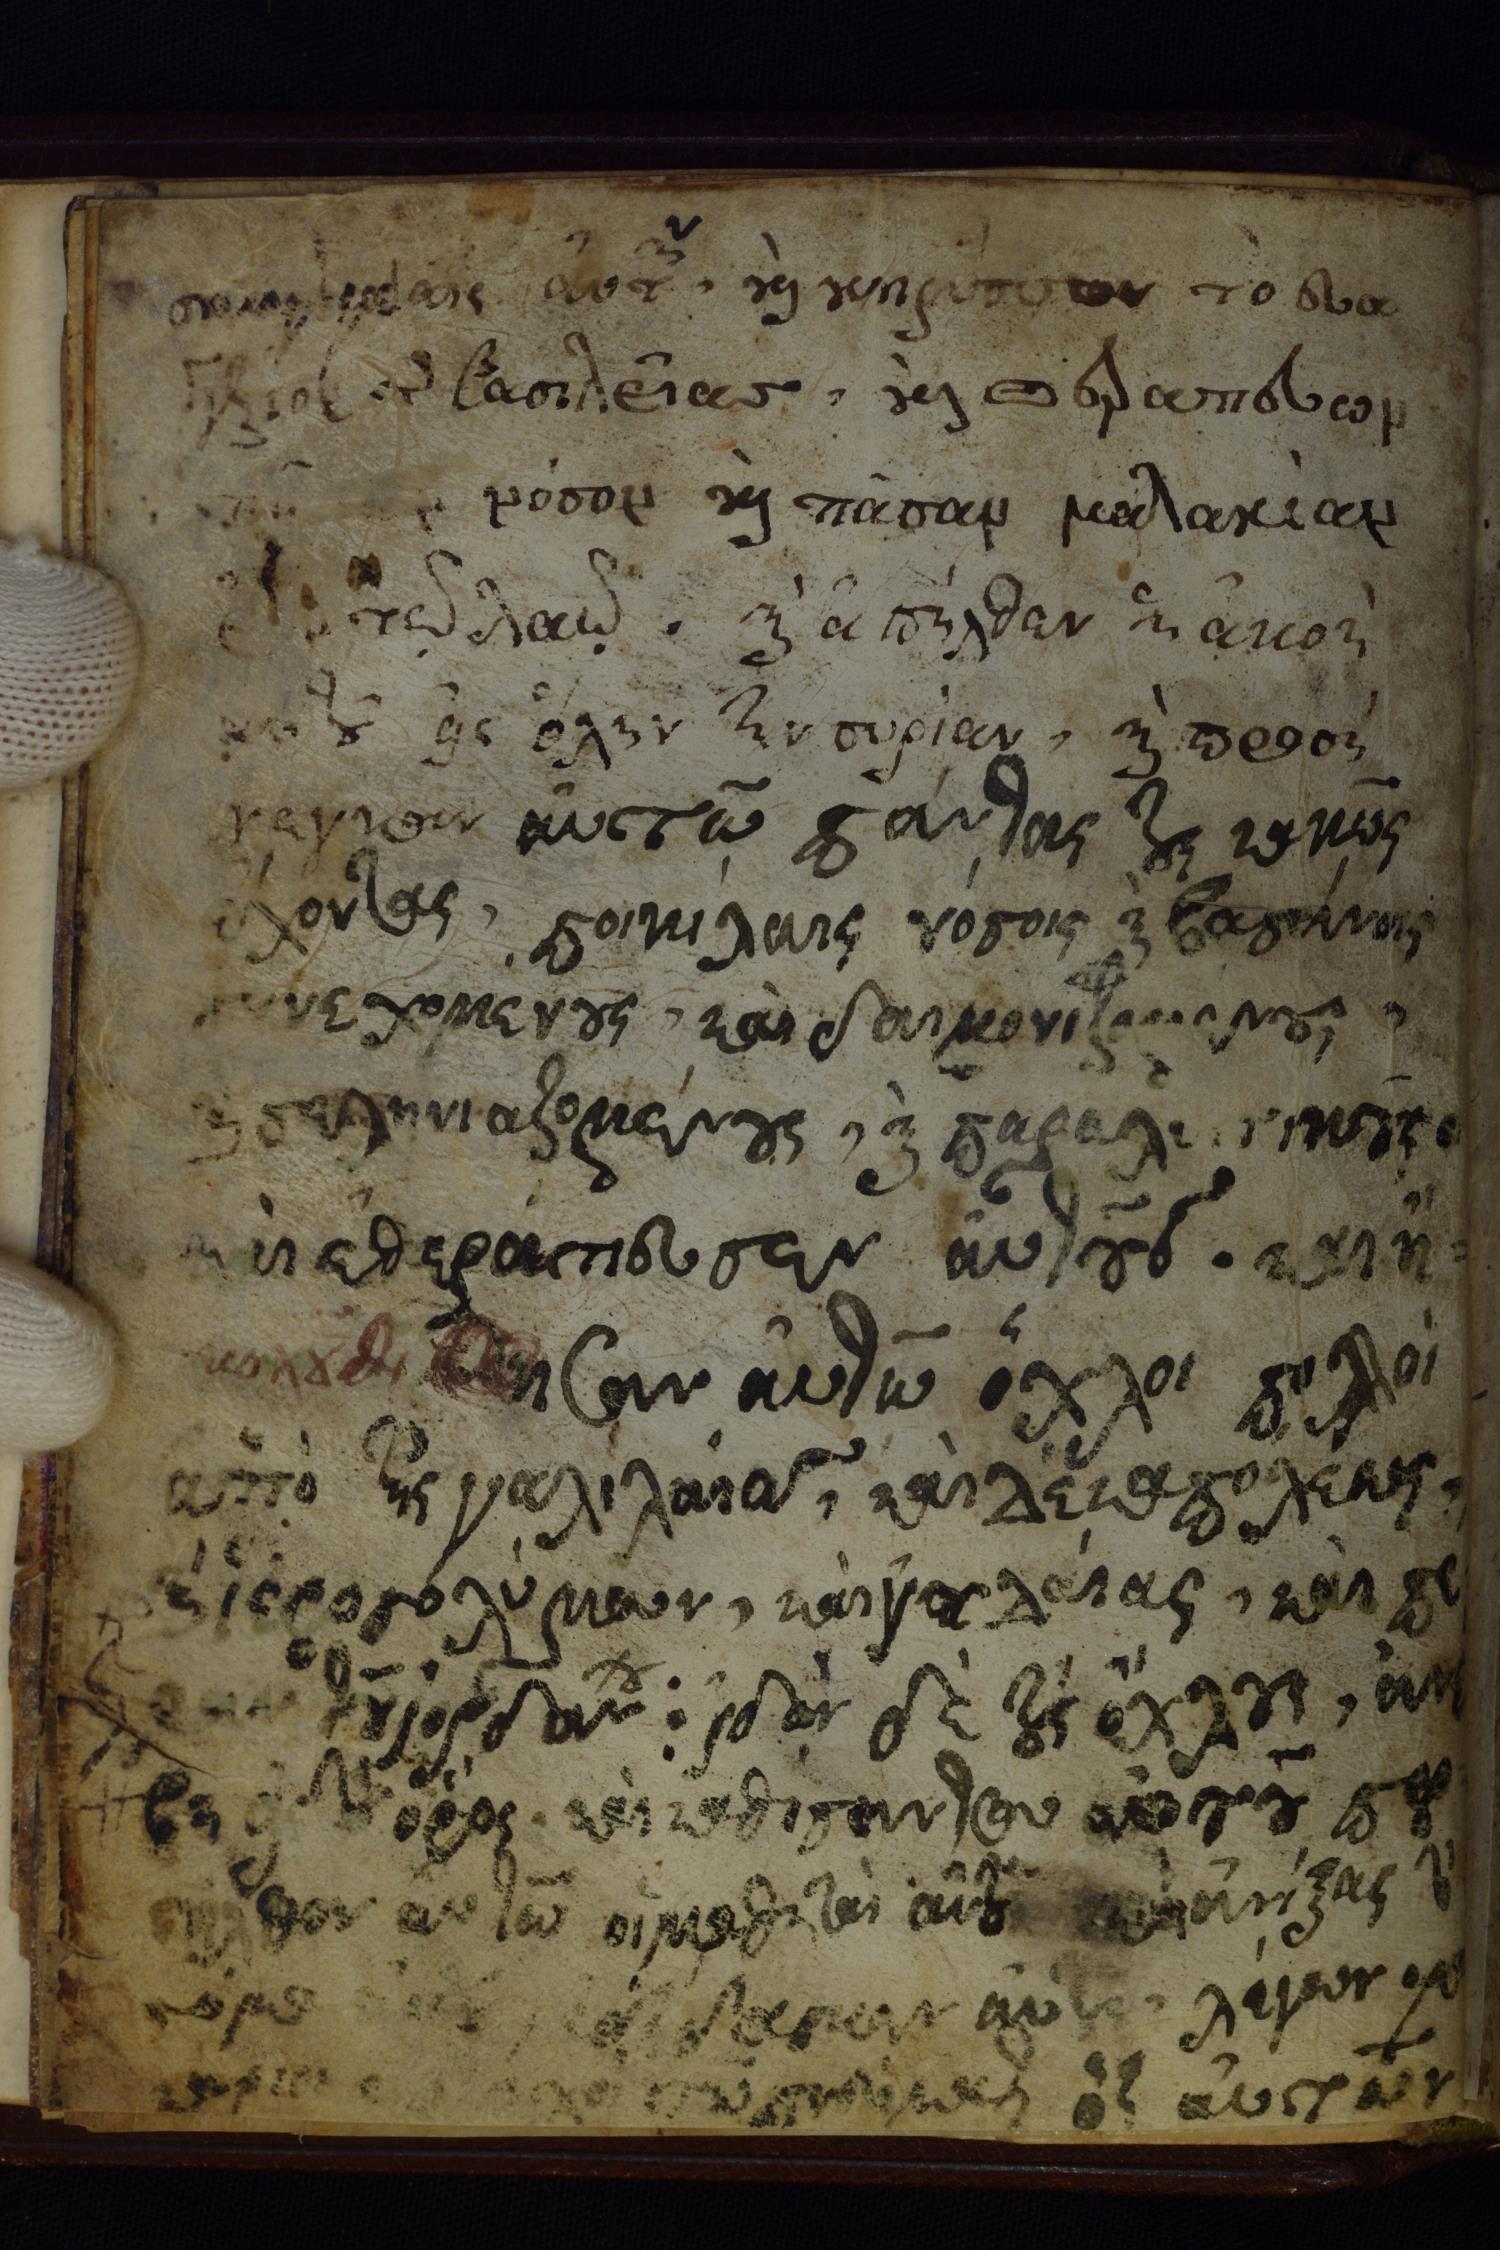 συναγωγαῖς αὐτῶν, καὶ κηρύσσων τὸ ευα
γγέλιον τῆς βασιλείας, καὶ θεραπευων
πᾶσαν νόσον καὶ πᾶσαν μαλακίαν
ἐν τῷ λαῷ. καὶ ἀπῆλθεν ἡ ἀκοὴ
αυτοῦ εἰς ὅλην τὴν συρίαν, καὶ προσή
νεγκαν αὐτῶ πάντας τοὺς κακῶς
ἔχοντας, ποικίλαις νόσοις καὶ βασάνοις
συνεχομένους, καὶ δαιμονιζομένους,
καὶ σεληνιαζομένους, καὶ παραλυτικοὺς
καὶ ἐθεράπευσεν αὐτοῦς. καὶ ἠ
κολούθησαν αὐτῶ ὄχλοι πολλοὶ
ἀπὸ τῆς γαλιλαίας, καὶ δεκαπόλεως,
καὶ ἱεροσολύμων, καὶ ἰουδαίας, καὶ πέ
ραν τοῦ ἰορδάνου: ἰδὼν δὲ τοὺς ὄχλους, ἀνέ
βη εἰς τὸ ὄρος. καὶ καθίσαντος αὐτοῦ προ
σῆλθον αὐτῶ οἱ μαθηταὶ αὐτοῦ καὶ ἀνοίξας τὸ
στόμα αὐτοῦ, ἐδίδασκεν αὐτοὺς, λέγων μα
κάριοι οἱ πτωχοὶ τῶ πνεύματι ὅτι αὐτῶν